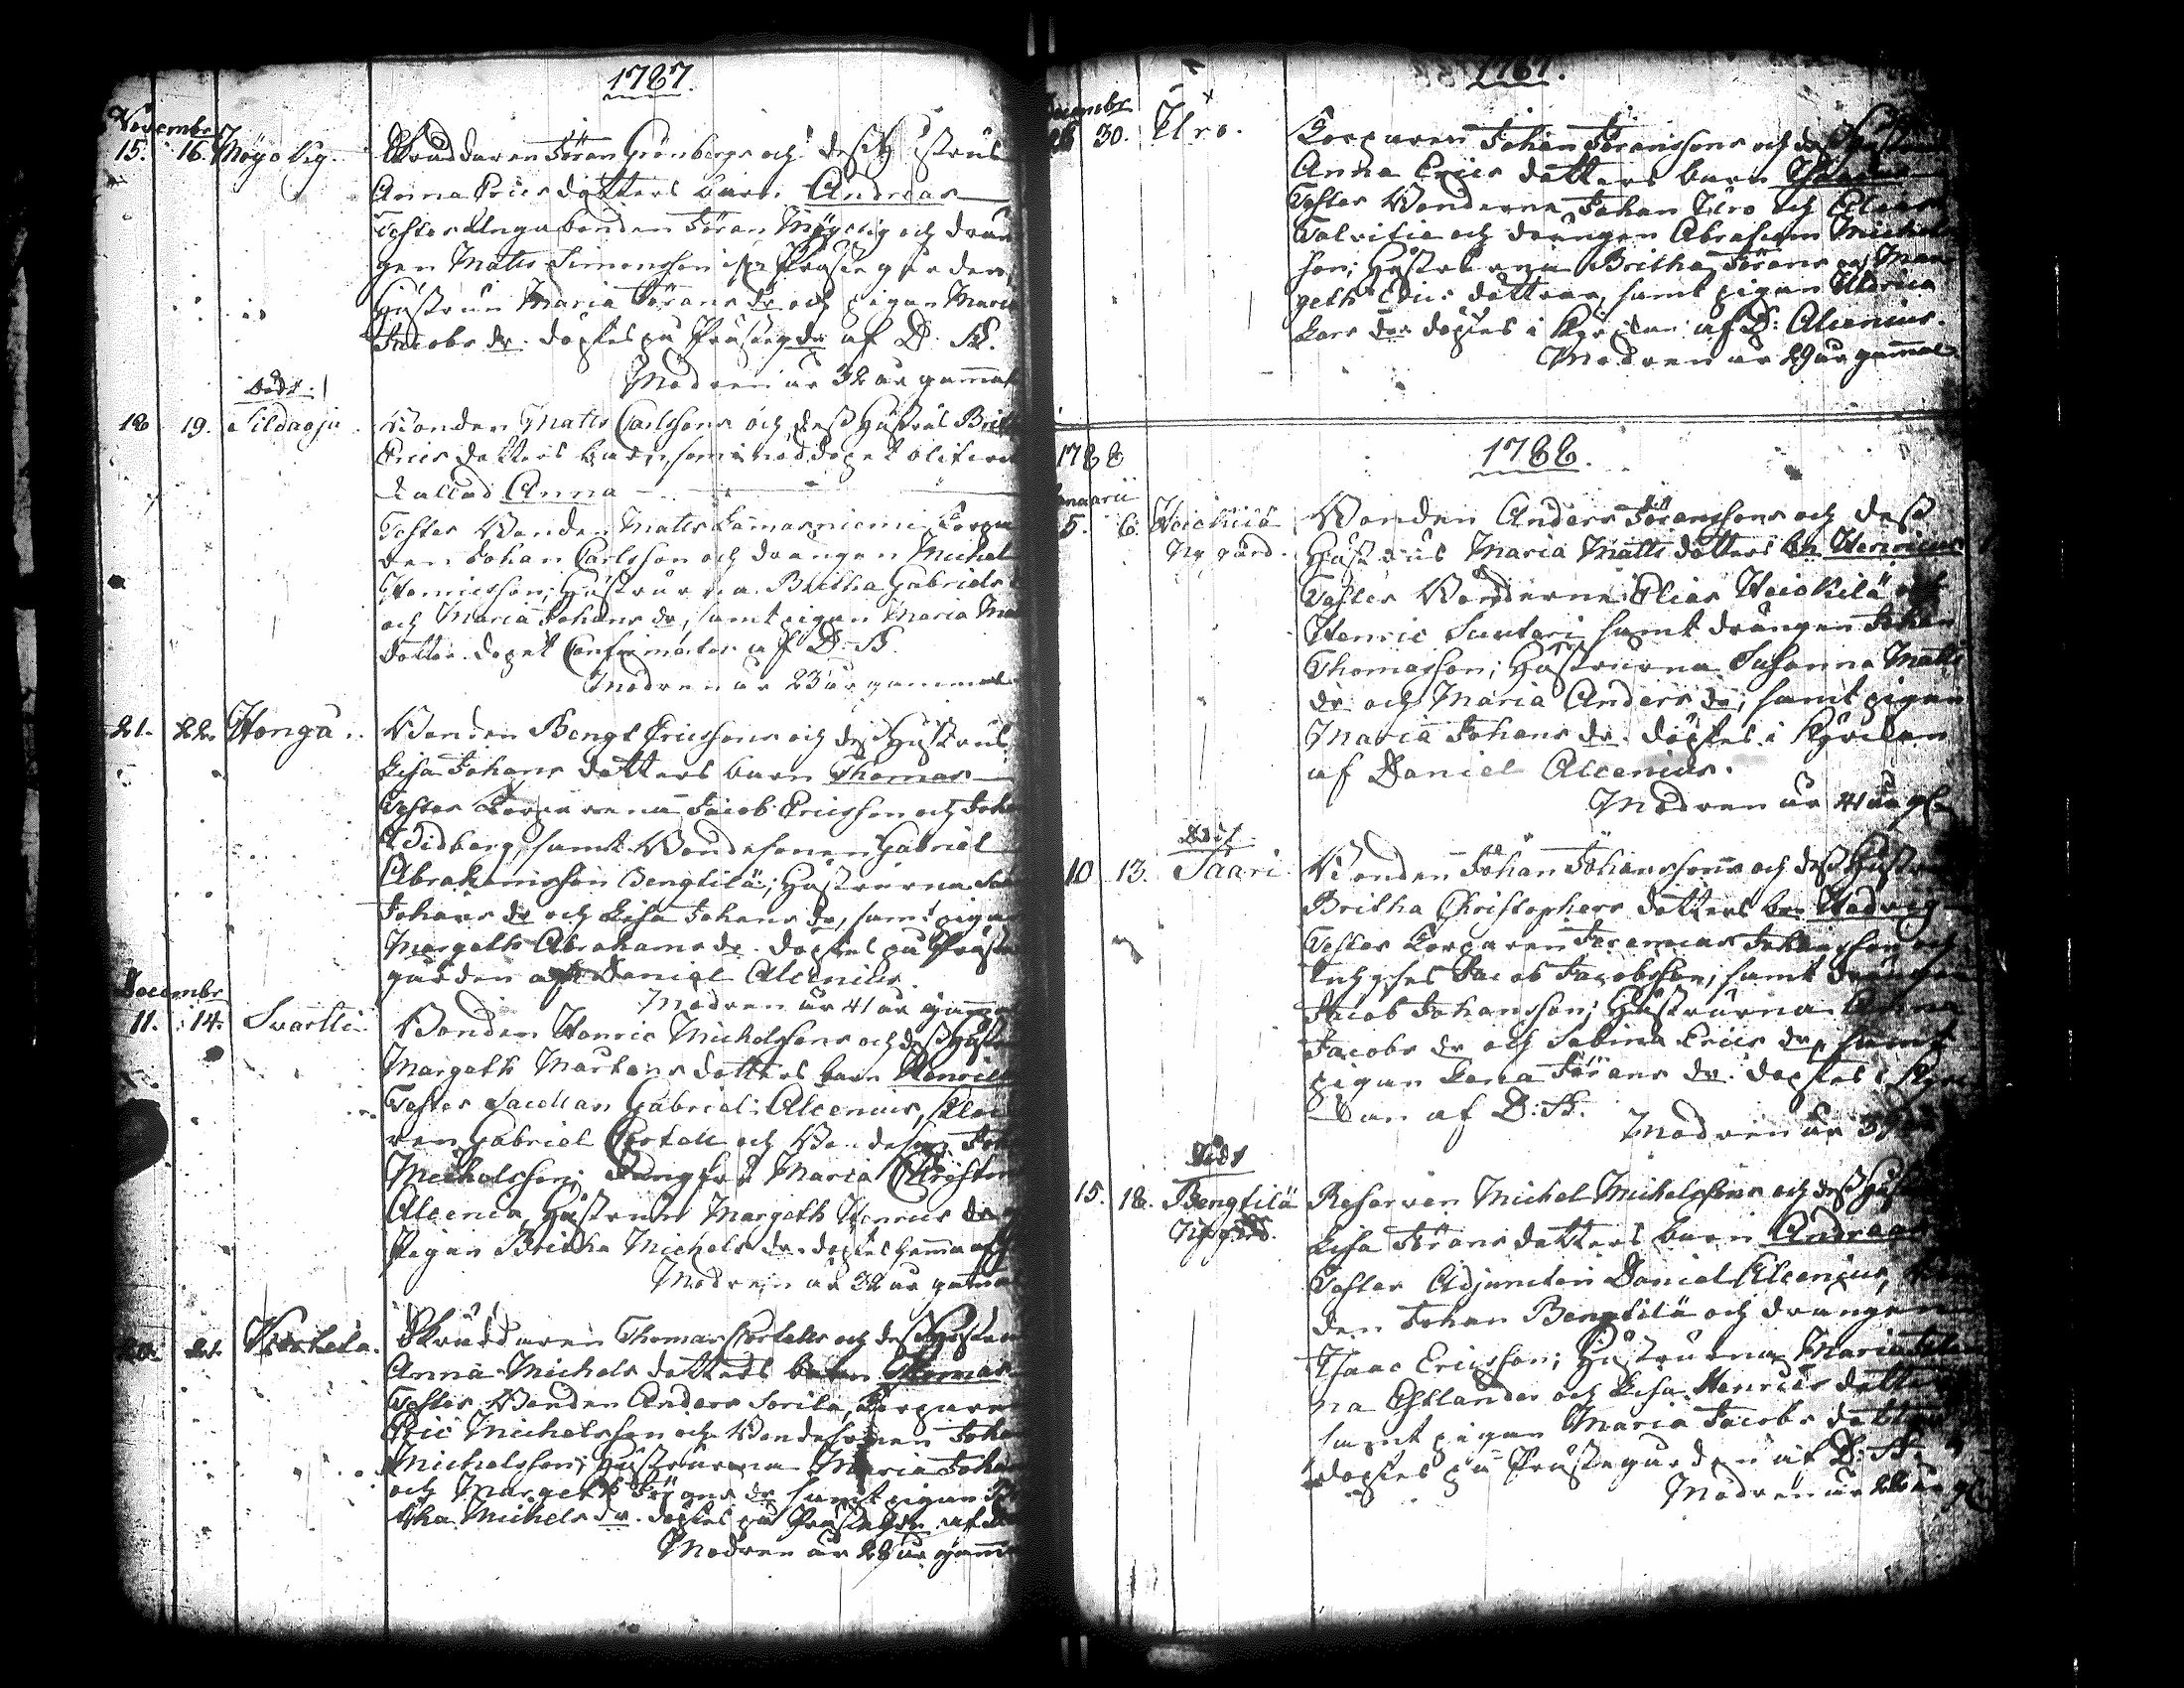 1787.
Novembr
15. 16. Mÿolig. Skräddaren Jöran Grönbergs och dess Hustrus
Anna Erics dotters barn Andreas
Testes Unga bonden Jöran Mÿolig och drän
gen Matts Simonsson ifrn Prästegården,
Hustrun Maria Jörans dr och pigan Maria
Jacobs dr. döptes på Prästegdn af D. A.
Modren är 32 år gammal
Död.
18 19. Sildaoja Bonden Matts Carlssons och dess Hustrus Brit
Erics dotters barn, som i nöddopet blifvit
kallad Anna
Testes Bonden Matts Lamasniemi, Torpa
ren Johan Carlsson och drängen Michel
Henricsson; Hustrurna Britha Gabriels
och Maria Johans dr, samt pigan Maria Ma
dotter. dopet Confirmertes af D. A.
Modren är 23 år gammal
21. 22. Honga. Bonden Bengt Ericssons och dess Hustrus
Lisa Johans dotters barn Thomas
Testes Torparena Jacob Ericsson och Joha
Widberg, samt Bondesonen Gabriel
Abrahamsson Bengtilä; Hustrurna
Johans dr och Lisa Johans dr, samt pigan
Margeth Abrahams dr. döptes på Präste
gården af Daniel Alcenius.
Modren är 41 år gamm
Decembr
11. 14. Svartti Bonden Henric Michelssons och dess Hust
Margeth Martens dotters barn Henric
Testes Sacellan Gabriel Alcenius, Kloc
ren Gabriel Cortell och Bondeson Joh
Michelsson; Jungfru Maria Christin
Alcenia, Hustrun Margeth Henrics dr
Pigan Britha Michels dr. döptes hemma af
Modren är 32 år gamma
20. 21. Korhela. Skräddaren Thomas Cortells och dess Hustru
Anna Michels dotters barn Thomas
Testes Bonden Anders Sorila, Torparen
Eric Michelsson och Bondesonen Joha
Michelsson; Hustrurna Maria Joha
och Margeth Jörans dr samt pigan Br
tha Michels dr. döptes på Prästegdn af
Modren är 28 år gamm
1787.
Decembr
30. Klro. Torparen Johan Jöranssons och dess Hustru
Anna Erics dotters barn
Testes Bonderna Johan Klro och Elias
Talvitie och drängen Abraham Michels
son; Hustrurna Britha Jörans och Mar
geth Erics döttrar, samt pigan Ulrica
Lars dr döptes i Kyrkan af D: Alcenius.
Modren är 29 år gammal
1788.
1788
Januarii
5. 6. Heickilä Bonden Anders Jöranssons och dess
Nygård. Hustrus Maria Matts dotters bn Henricus
Testes Bönderna Elias Heickilä och
Henric Sautari samt drängen Johan
Thomasson; Hustrurna Susanna Matts
dr och Maria Anders dr, samt pigan
Maria Johans dr. döptes i Kyrkan
af Daniel Alcenius.
Modren är 41 år gl
Död
10 13. Saari Bonden Johan Johanssons och dess Hustru
Britha Christophers dotters bn Hedvig
Testes Torparen Jeremias Johansson och
Inhyses Jacob Jacobsson, samt drängen
Jacob Johansson; Hustrurna Anna
Jacobs dr och Sabina Erics dr, samt
pigan Lena Jörans dr. döptes i Kyr
kan af D: A.
Modren är
Död
15. 18. Bengtilä Reserven Michel Michelssons och dess Hust
Nygård. Lisa Jörans dotters barn Andreas
Testes Adjuncten Daniel Alcenius,
den Johan Bengtilä och drängen
Isaac Ericsson; Hustrurna Maria
na Estlander och Lisa Henrics dotter
samt pigan Maria Jacobs dotter
döptes på Prästegården af D: A.
Modren är 22 år gl